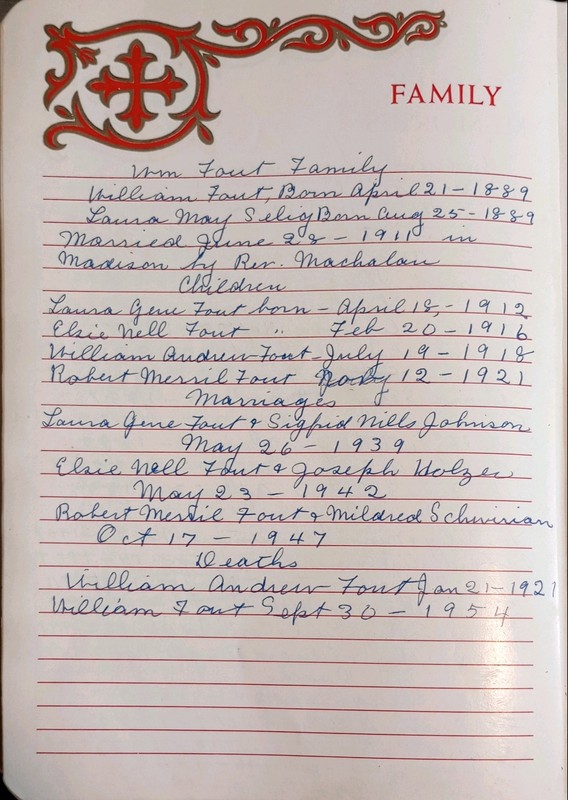 FAMILY
Wm Fout Family
William Fout, Born April 21-1889
Laura May Selig Born Aug 25-1889
Married June 28-1911 in
Madison by Rev. Machalan
Children
Laura Gene Fout born - April 18,-1912
Elsie Nell Fout " Feb 20-1916
William Andrew Fout-July 19-1918
Robert Merril Fout 12-1921
Marriages
Laura Gene Fout & Sigfrid Nills Johnson
May 26-1939
Elsie Nell Fout & Joseph Holzer
May 23-1942
Robert Merril Fout & Mildred Schwirian
Oct 17-1947
Deaths
William Andrew Fout Jan 21-1921
William Fout Sept 30-1954